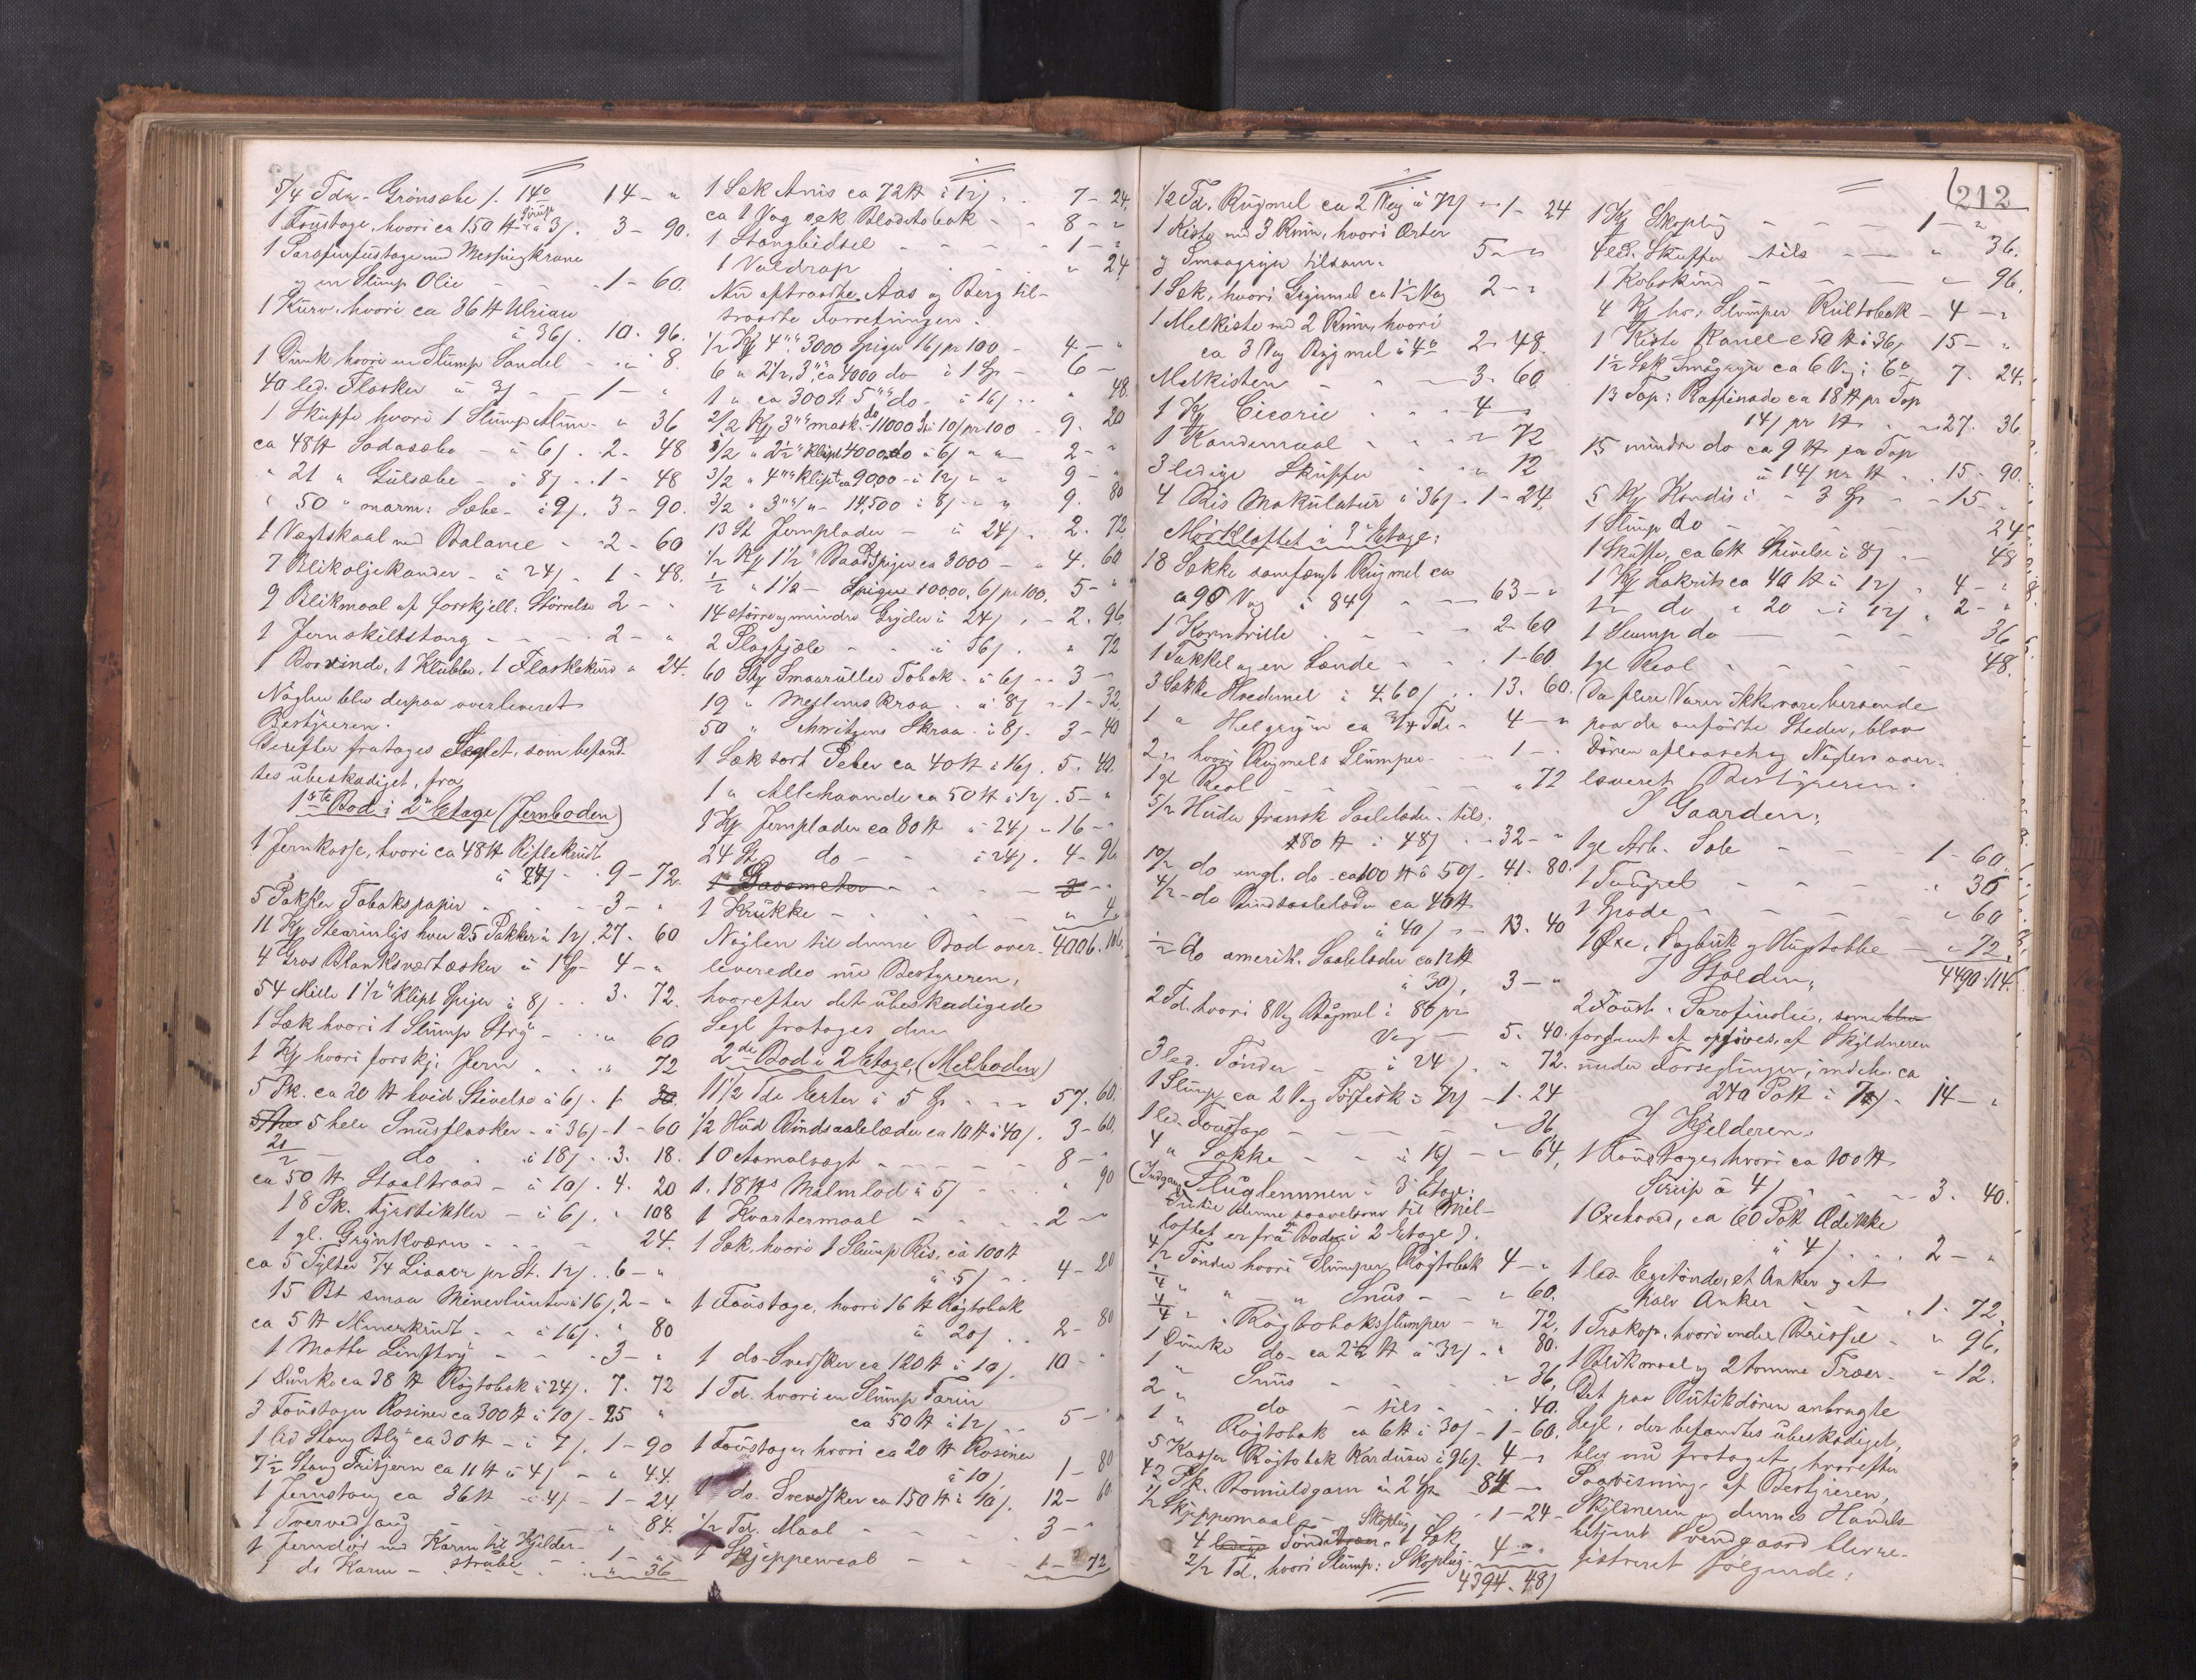 5/4 Tdr. Grönsæbe /. 14 14 - "
1 Foustage, hvori ca 150 ℔ Sirup à 3/. 3 - 90.
1 Parafinfustage med Messingkrane
og en Slump Olie - - 1 - 60.
1 Kurv, hvori ca 36 ℔
à 36/. 10. 96.
1 Dunk hvori en Slump Sandel - " 8.
40 led. Flasker à 3/ - 1 - "
1 Skuffe hvori 1 Slump Alun - " 36
ca 48 ℔ Sodasæbe - à 6/. 2. 48
" 21 " Gulsæbe - à 8/ . 1 - 48
" 50 " marm: Sæbe - à 9/. 3 - 90.
1 Vægtskaal med Balance - 2 - 60
7 Blikoljekander - à 24/ . 1 - 48.
9 Blikmaal af forskjell: Størrelse 2 - "
1 Jernskiltstang - - - 2 - "
1 , 1 Klubbe, 1 Flaskekurv " 24.
Nøglen blev derpaa overleveret
Bestyreren.
Derefter fratages Seglet, som befand-
tes ubeskadiget, fra
1ste Bod i 2n Etage (Jernboden)
1 Jernkasse, hvori ca 48 ℔ Riflekrudt
à 24/ - 9 - 72.
5 Pakker Tobakspapir - - 3 - "
11 Kg Stearinlys hver 25 Pakker à 12/. 27. 60
4 Gros Blanksværtæsker à 1 Sp 4 - "
54 Mille 1 1/2" klipt Spiger à 8/ . 3. 72.
1 Sæk hvori 1 Slump Stry - " 60
1 Kg hvori forskj. Jern . . " 72
5 Pk. ca 20 ℔ hvid Stivelse à 6/. 1
5 hele Snusflasker - à 36/ - 1 - 60
21/2 - do - à 18/ . 3. 18.
ca 50 ℔ Staaltraad - à 10/. 4. 20
18 Pk. Fyrstikker - à 6/. " 108
1 gl. Grynkværn - - - 24.
ca 5 Tylter 5/4 Liaaer pr St. 12/. 6 - "
15 Bt smaa Minerlunter à 16/, 2 - "
ca 5 ℔ Minerkrudt - à 16/. " 80
1 Matte Linstry - - 3 - "
1 Dunk ca 38 ℔ Røgtobak à 24/. 7. 72
3 Foustager Rosiner ca 300 ℔ à 10/ - 25 "
1 lid Stang Bly ca 30 ℔ - à 7/. 1 - 90
7 1/2 Stang ca 11 ℔ à 4/ - " 44.
1 Jernstang ca 36 ℔ à 4/ - 1 - 24
1 Tvervedsaug - - " 84.
1 Jerndör med Karm til Kjelder- 1 - "
1 do Karm - - - " 36
1 Sæk Anis ca 72 ℔ à 12/ . 7 - 24.
ca 1 Vog sæk Bladtobak - - 8 - "
1 Stangbidsel - - - 1 - "
1 Valdrap - - " 24
Nu aftraadte Aas og Berg til-
traadte Forretningen.
1/2 Kg 4"" 3000 Spiger 16/ pr 100 - 4 - "
6 " 2 1/2, 3"" ca 4000 do - à 1 Sp - 6 -
1 " ca 300 St 5"" do - à 16/ . . " 48
2/2 Kg 3"" mask. do 11000 St 10/ pr 100 . 9. 20
3/2 " 2 1/2" klipt 4000 do à 6/ " " 2 - "
3/2 " 4"" klipt ca 9000 - à 12/ " " 9 - "
3/2 " 3"" 14,500 à 8/ - " " 9. 80
13 St Jernplader - à 24/ . 2. 72
1/2 Kg 1 1/2" Baadspiger ca 3000 - " 4. 60
1/2 " 1 1/2 - Spiger 10000, 6/ pr 100. 5 - "
14 større og mindre Gryder à 24/ . - 2. 96
2 Plogfjæle - - à 36/ . " 72
60 Stg Smaarullet Tobak - à 6/ . . 3 -
19 " Mellemskraa - à 8/ - 1 - 32
50 " Schwitzens Skraa - à 8/. 3 - 40
1 Sæk sort Peber ca 40 ℔ à 16/. 5. 40.
1 " Allehaande ca 50 ℔ à 12/. 5 - "
1 Kg Jernplader ca 80 ℔ à 24/ " 16 - "
24 St do - - à 24/. 4. 96
1 Barometer - - - 3 - "
1 Krukke - - - " 4
4006. 106.
Nøglen til denne Bod over-
leveredes nu Bestyreren,
hvorefter det ubeskadigede
Segl fratages den
2den Bod i 2 Etage, (Melboden)
11 1/2 Tdr Erter à 5 Sp . . . 57. 60.
1/2 Hud Bindsaalelæder ca 10 ℔ à 40/. 3 - 60.
1 8 - "
1. 18 ℔s Malmlod à 5/ - - " 90
1 Kvartermaal - - - 2 - "
1 Sæk, hvori 1 Slump Ris, ca 100 ℔
à 5/ - - 4 - 20
1 Foustage, hvori 16 ℔ Røgtobak
à 20/ . . 2 - 80
1 do - Svedsker ca 120 ℔ à 10/. 10 - "
1 Td. hvori en Slump Farin
ca 50 ℔ à 12/ 5 - "
1 Foustage, hvori ca 20 ℔ Rosiner
à 10/ 1 - 80
1 do. Svedsker ca 150 ℔ à 10/. 12 - 60
1/2 Td. Maal - - - 3 - "
1 Skjeppemaal - - - 1 - 72
212
1/2 Td. Rugmel ca 2 Vog à 72/ - 1 - 24
1 Kiste med 3 Rum, hvori Erter
og Smaagryn tilsam. 5 - "
1 Sæk, hvori Grynmel ca 1 1/2 Vog 2 - "
1 Melkiste med 2 Rum, hvori
ca 3 Vog Bygmel à 4 2. 48.
Melkisten - - - 3. 60
1 Kg Cicorie - - - 4 - "
1 Kandemaal - - - " 72
3 ledige Skuffer - - " 12
4 Ris Makulatur à 36/. 1 - 24.
Mørkloftet i 3 Etage:
18 Sække Rugmel ca
a 90 Vog à 84/ - - 63 - "
1 Korntrille - - - 2 - 60
1 Takkel og en Lænde - - 1 - 60.
3 Sække Hvedemel à 4.60/ . 13. 60.
1 " Helgryn ca 3/4 Td. - 4 - "
2 " hvori Rugmels Slumper - 1 - "
1 gl Reol - - - " 72
5/2 Huder fransk Saalelæder tils.
80 ℔ à 48/ - 32 - "
10/2 do engl. do - ca 100 ℔ à 50/. 41. 80.
4/2 - do Bindsaalelæder ca 40 ℔
à 40/ - 13. 40
1/2 do amerik. Saalelæder ca 12 ℔
à 30/. 3 - "
2 Td. hvori 8 Vg Bygmel à 80 pr
Vog - 5. 40.
3 led. Tønder - à 24/. " 72.
1 Slump ca 2 Vog Tørfisk à 72/ - 1 - 24
1 led. Foustage - - - " 36
4 " Sække - - à 16/ - " 64,
(Indgang Fluglemmen i 3 Etage:
til denne saavelsom til Mel-
loftet er fra Boden i 2 Etage).
4/2 Tönder hvori Slumper Røgtobak 4 - "
4/4 " " " Snus - - " 60.
4/4 " . Røgtobaksslumper - " 72,
1 Dunke do - ca 2 1/2 ℔ à 32/ - " 80.
1 " Snus - - - " 36,
2 " do - tils - - 40.
1 " Røgtobak ca 6 ℔ à 30/ - 1 - 60.
5 Kasser Røgtobak Karduser à 96/. 4 - "
42 Pk. Bomuldgarn à 2 Sp 84 - "
1/2 Skjeppemaal - - - 1 - 24 -
4 ledige Tønder 1 Sæk Skoplug 4 - "
2/2 Td. hvori Slump: Skoplug -
4394. 48/
1 Kg Skoplug - - - 1 - "
4 led. Skuffer tils - - " 36.
1 Kobskind - - - " 96.
4 Kg hv. Slumper Rultobak - 4 - "
1 Kiste Kanel c 50 ℔ à 36/. 15 - "
1 1/2 Sæk Smågryn ca 6 Vog à 6 7. 24.
13 Top: Raffinade ca 18 ℔ pr Top
14/ pr ℔ - 27. 36.
15 mindre do ca 9 ℔ pr Top
à 14/ pr ℔ . 15. 90.
5 Kg Kandis à - 3 Sp - - 15 -
1 Slump do - - - 24
1 Skuffe, ca 6 ℔ Stivelse à 8/ - 48
1 Kg Lakrits ca 40 ℔ à 12/ " 4 - "
1/2 do à 20 - à 12/ . 2 - "
1 Slump do - - - 36
1 gl Reol - - - 48.
Da flere Varer ikke vare beroende
paa de anførte Steder, blev
Døren aflaaset og Nøglen over-
leveret Bestyreren.
I Gaarden;
1 gl Arb. Sele - - - 1 - 60.
1 - - " 36
1 - - - " 60
1 Øxe, Sagbuk og Hugstabbe - " 72.
4490. 114.
I Stalden;
2 Foust. Parafinolie, som blev
fordømt at opføres af Skyldneren
under Forseglingen, indeh. ca
240 Pott à 7/ - 14 - "
I Kjelderen.
1 Foustage, hvori ca 100 ℔
Sirup à 4/ - - 3. 40.
1 Oxehoved, ca 60 Pott Eddikke
à 4/ . . 2 - "
1 led. Egetønde, et Anker og et
halv Anker - - . 1. 72.
1 Trækop. hvori endel Brissel - " 96.
1 Blikmaal og 2 tomme Træer - " 12.
Det paa Butikdören anbragte
Segl, der befandtes ubeskadiget,
blev nu frataget, hvorefter
Paavisning af Bestyreren,
Skyldneren og dennes Handels-
betjent Svendgaard blev re-
gistreret følgende: